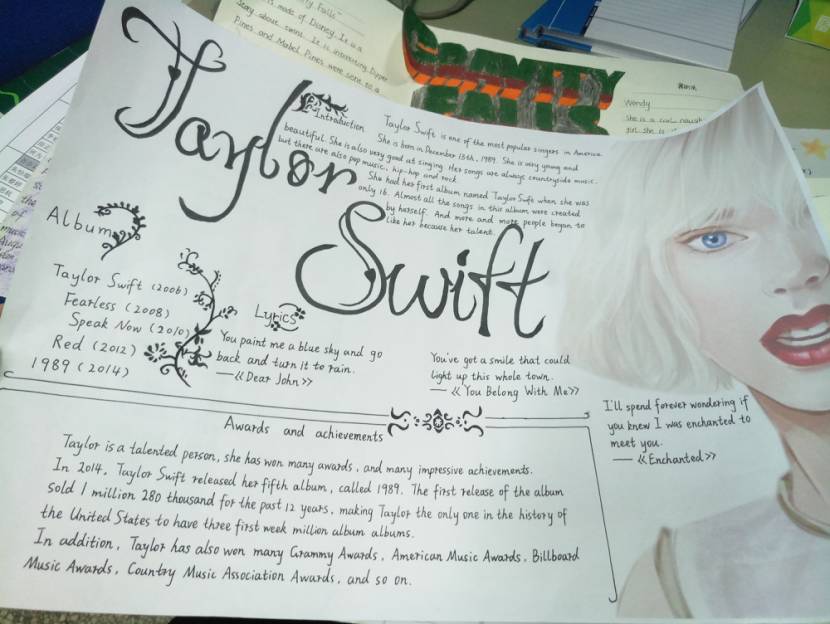 Taylor
Swift
Introduction
Taylor Swift is one of the most popular singers in America.
She is born in December 13th, 1989. She is very young and
beautiful. She is also very good at singing. Her songs are always countryside music.
but there are also pop music, hip-hop and rock.
She had her first album named Taylor Swift when she was
only 16. Almost all the songs in this album were created
by herself. And more and more people began to
like her because her talent.
Album
Taylor Swift (2006)
Fearless (2008)
Speak Now (2010)
Red (2012)
1989 (2014)
Lyrics
You paint me a blue sky and go
back and turn it to rain.
—《Dear John》
You've got a smile that could
light up this whole town.
—《You Belong With Me》
I'll spend forever wondering if
you knew I was enchanted to
meet you.
—《Enchanted》
Awards and achievements
Taylor is a talented person, she has won many awards, and many impressive achievements.
In 2014, Taylor Swift released her fifth album, called 1989. The first release of the album
sold 1 million 280 thousand for the past 12 years, making Taylor the only one in the history of
the United States to have three first week million album albums.
In addition, Taylor has also won many Grammy Awards, American Music Awards, Billboard
Music Awards, Country Music Association Awards, and so on.
Falls
is made of Disney. It is a
story about twins. It is interesting. Dipper
Pines and Mabel Pines were sent to a
GRAVITY
FALLS
Wendy
She is a cool
girl. She is